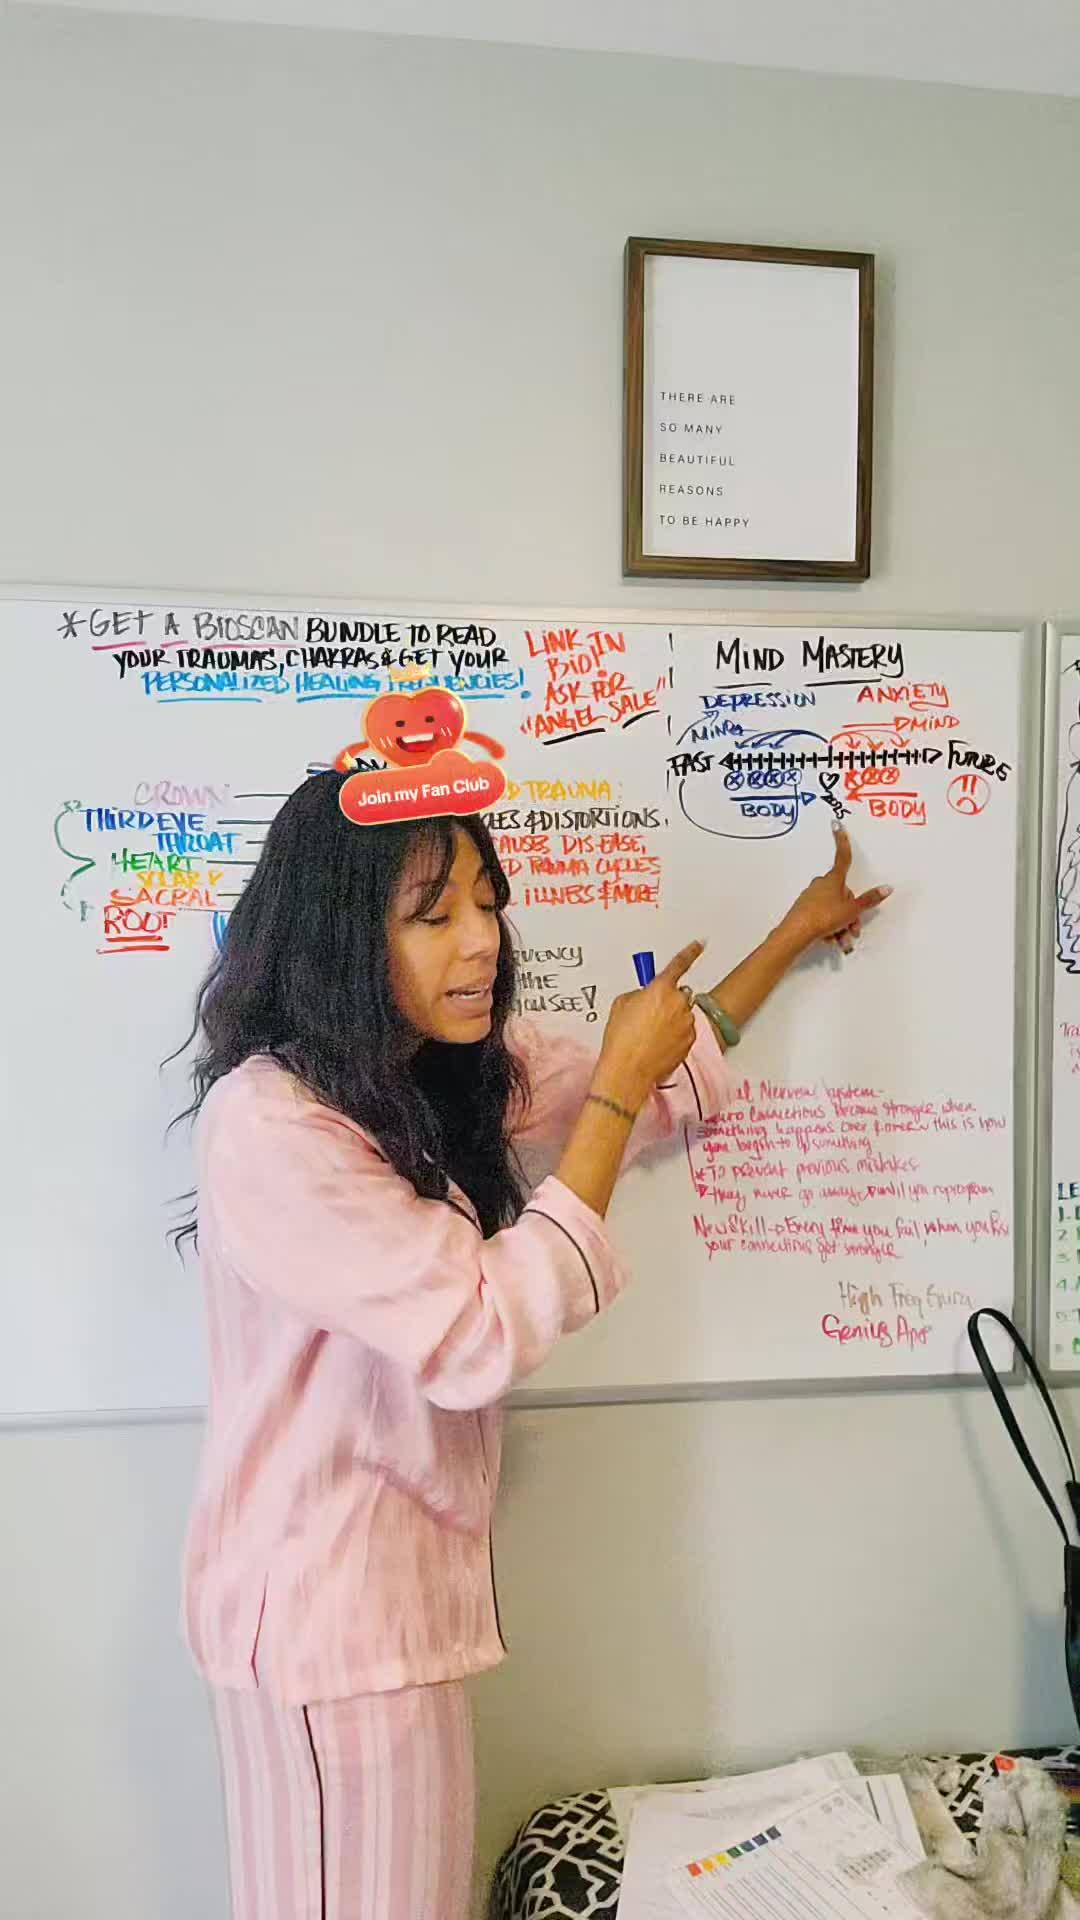 THERE ARE
SO MANY
BEAUTIFUL
REASONS
TO BE HAPPY
*GET A BIOSCAN BUNDLE TO READ
YOUR TRAUMAS, CHAKRAS & GET YOUR
PERSONALIZED HEALING FREQUENCIES!
LINK IN
BIO!
ASK FOR
"ANGEL SALE"
Join my Fan Club
CROWN
THIRD EYE
THROAT
HEART
SOLAR P
SACRAL
ROOT
D TRAUMA:
LES & DISTORTIONS.
AUSES DIS-EASE,
D TRAUMA CYCLES
ILLNESS & MORE
UENCY
the
YOU SEE!
MIND MASTERY
DEPRESSION ANXIETY
MIND MIND
PAST FUTURE
2025
BODY BODY
Nervous System-
Connections become stronger when
something happens over & over this is how
you begin to something
*To prevent previous mistakes
they never go away until you reprogram
New Skill Every time you fail when you
your connections get stronger
High Freq
Genius App
LE
1.
2
3
4.
5.